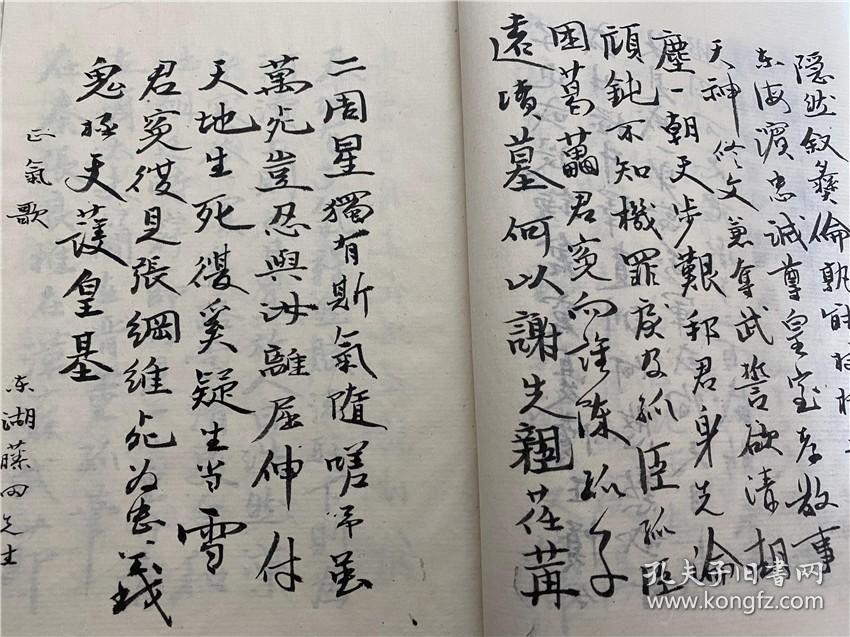 隠然叙彝倫孰能扶持
东海濱忠誠尊皇室孝敬事
天神修文兼奮武誓欲清胡
塵一朝天步艱邦君身先淪
頑鈍不知機罪戾及孤臣孤臣
困葛藟君冤向誰陳孤子
遠墳墓何以謝先親荏苒
二周星獨有斯氣隨嗟予雖
萬死豈忍與汝離屈伸付
天地生死復奚疑生当雪
君冤復見張綱維死为忠義
鬼極天護皇基
正氣歌
东湖藤田先生
孔夫子旧书网
www.kongfz.com